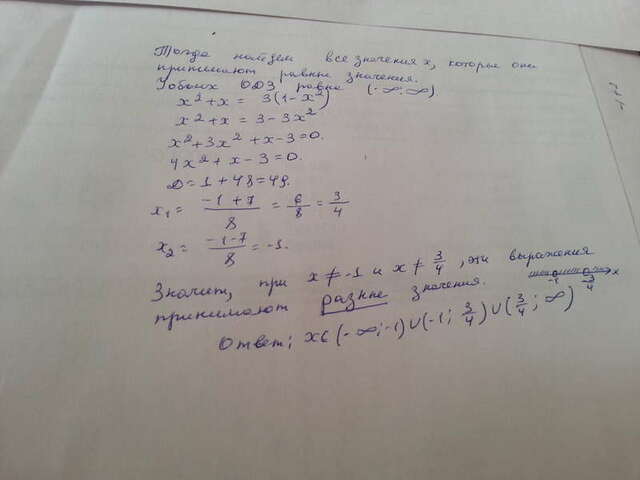 Тогда найдем все значения х, которые они
принимают равные значения.
У обоих ОДЗ равна (-∞;∞)
x²+x = 3(1-x²)
x²+x = 3-3x²
x²+3x²+x-3=0.
4x²+x-3=0.
D=1+48=49.
x₁= (-1+7)/8 = 6/8 = 3/4
x₂= (-1-7)/8 = -1.
Значит, при x≠-1 и x≠3/4, эти выражения
принимают разные значения.
-1 3/4 x
Ответ: x∈(-∞;-1)∪(-1; 3/4)∪(3/4; ∞)